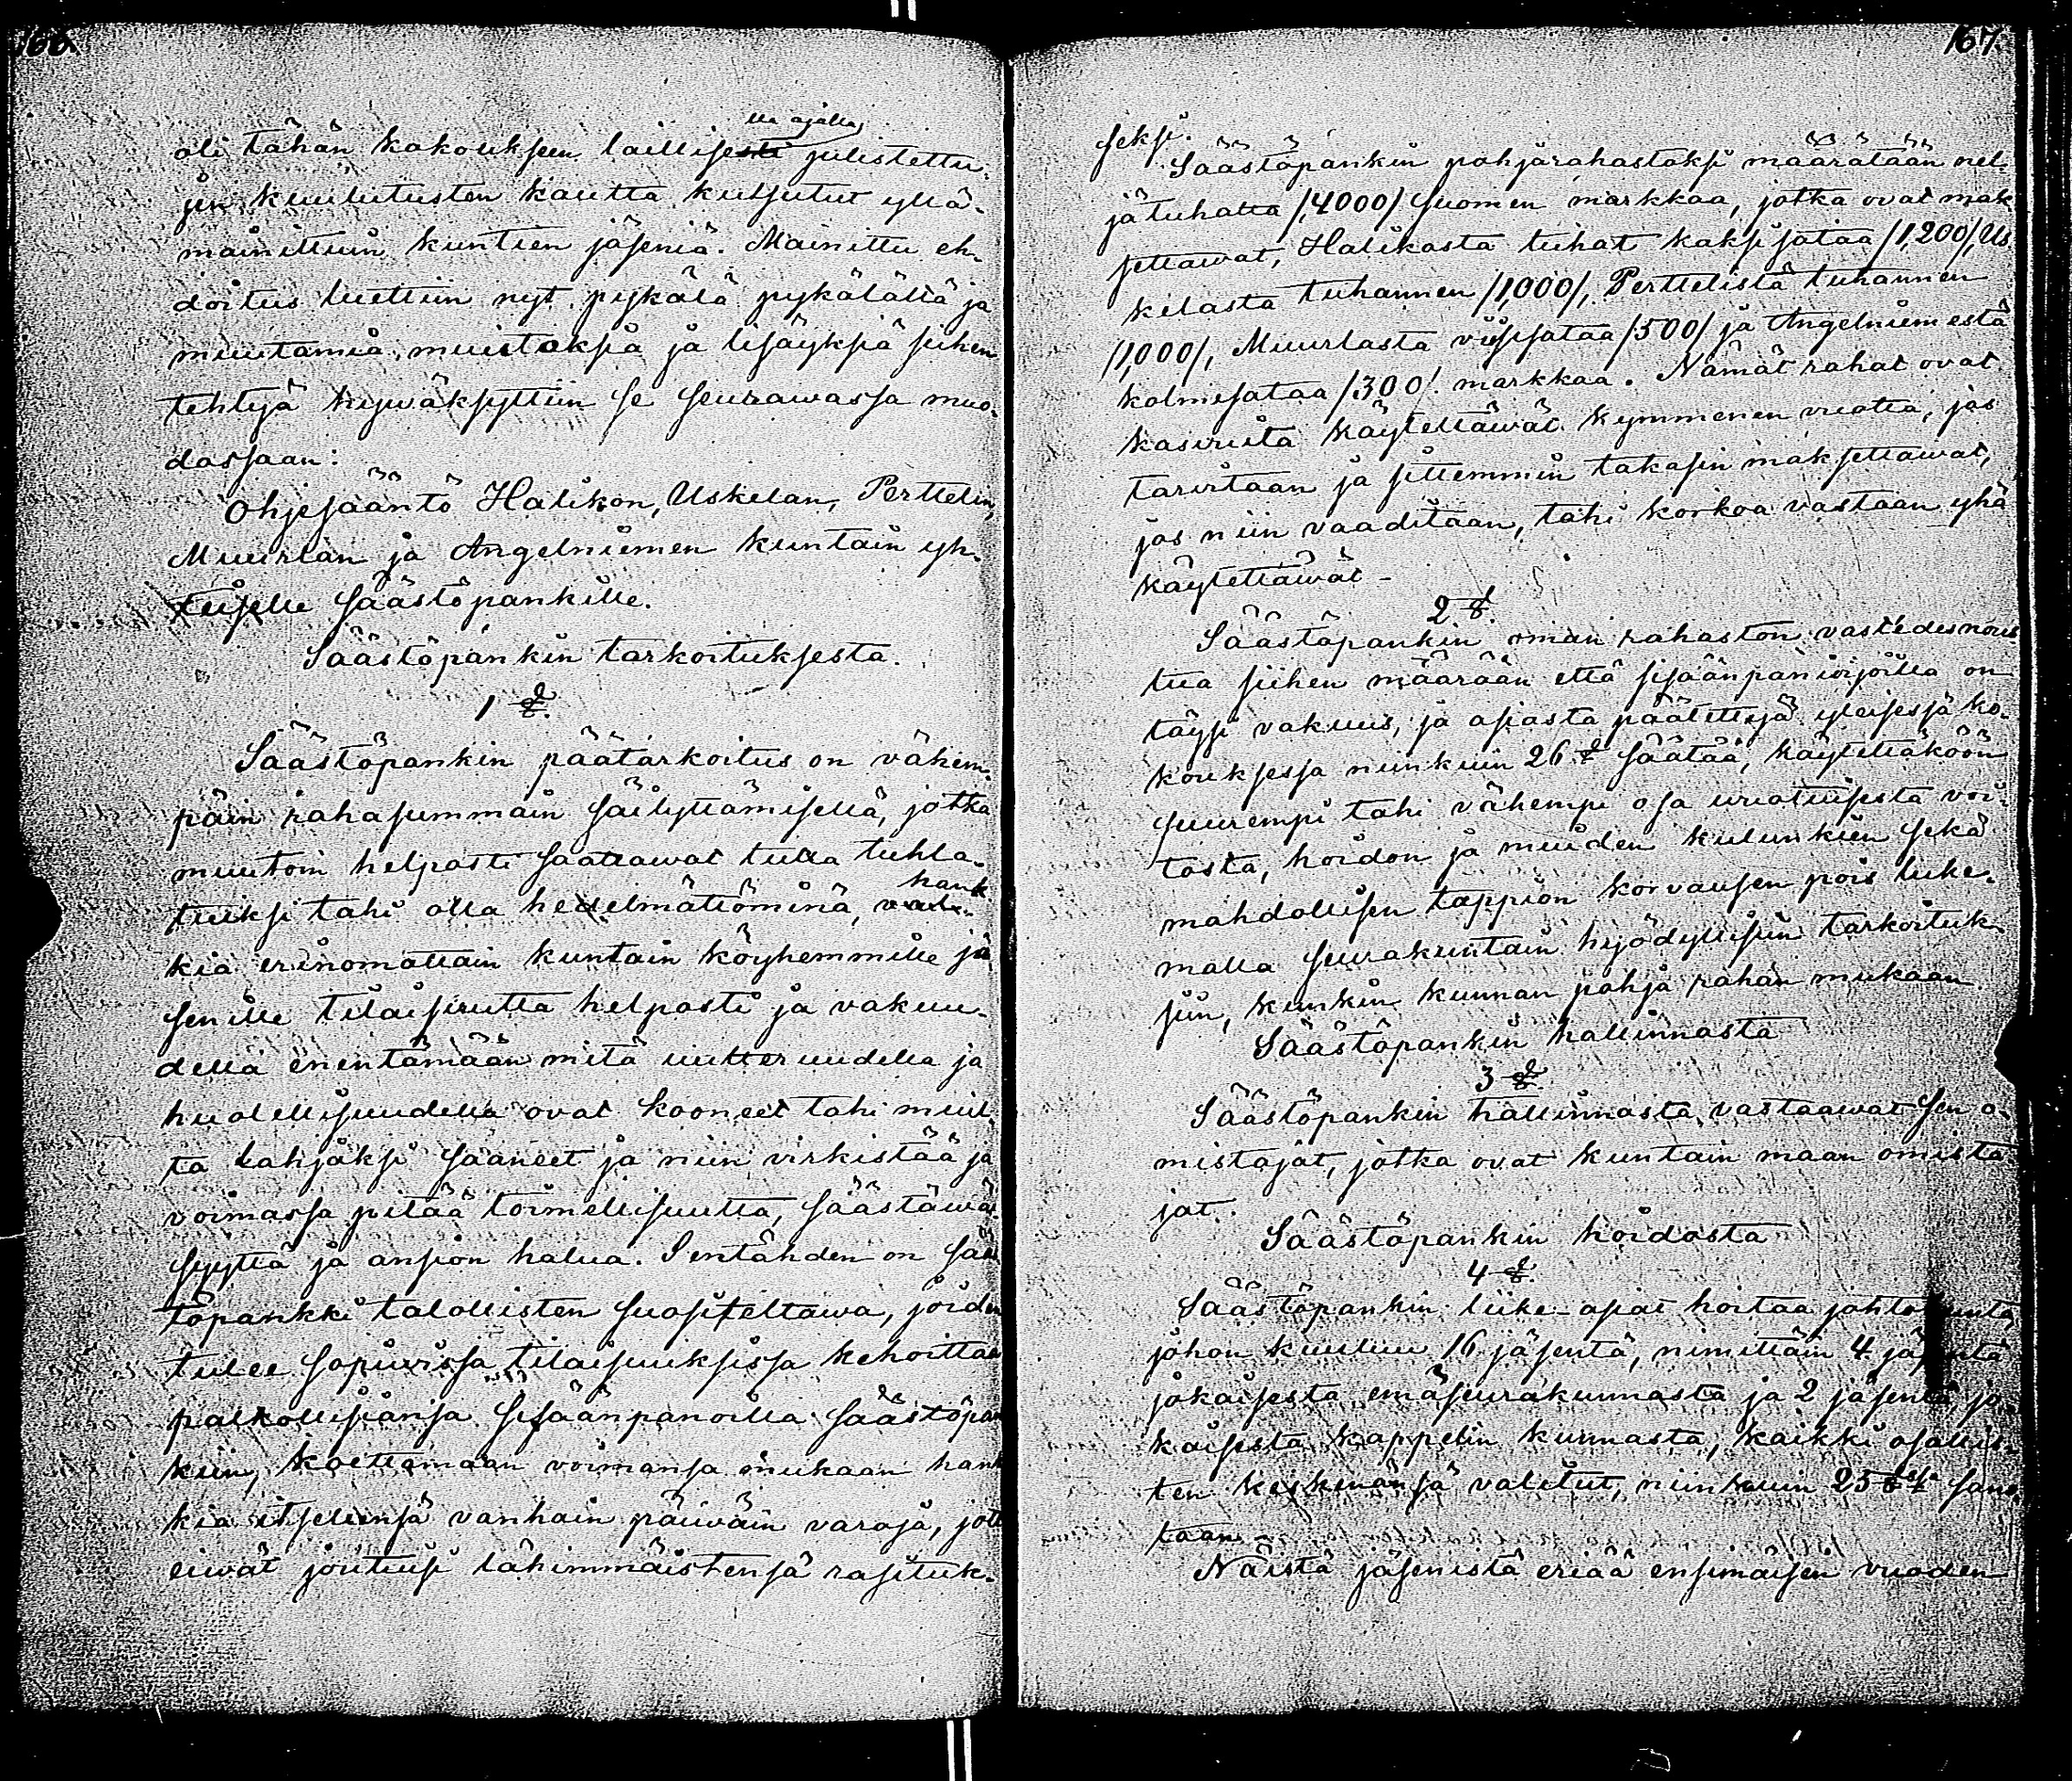 166.
oli tähän kokoukseen laillisella ajalla julistettu-
jen kuulutusten kautta kutsutut yllä-
mainittuin kuntien jäseniä. Mainittu eh-
doitus luettiin nyt pykälä pykälältä ja
muutamia muistoksia ja lisäyksiä siihen
tehtyä hyväksyttiin se seuraavassa muo-
dossaan:
Ohjesääntö Halikon, Uskelan, Perttelin,
Muurlan ja Angelniemen kuntain yh-
teiselle Säästöpankille.
Säästöpankin tarkoituksesta.
1 §.
Säästöpankin päätarkoitus on vähem-
päin rahasummain säilyttämisellä, jotka
muutoin helposti saattawat tulla tuhla-
tuiksi tahi olla hedelmättöminä, hank-
kia erinomattain kuntain köyhemmille jä
senille tilaisuutta helposti ja vakuu-
della enentämään mitä uutteruudella ja
huolellisuudella ovat kooneet tahi muul-
ta lahjaksi saaneet ja niin virkistää ja
voimassa pitää toimellisuutta, säästäwäi
syyttä ja ansion halua. Sentähden on sääs
töpankki talollisten suositeltawa, joiden
tulee sopivissa tilaisuuksissa kehoittaa
palkollisiansa sisäänpanoilla säästöpan
kiin, koettamaan voimansa mukaan hank
kia itsellensä vanhain päiväin varoja, jott
eiwät joutuisi lähimmäistensä rasituk-
167.
seksi.
Säästöpankin pohjarahastoksi määrätään nel-
jätuhatta /4000/ Suomen markkaa, jotka ovat mak
settawat, Halikosta tuhat kaksisataa /1,200/, Us
kelasta tuhannen /1,000/, Perttelistä tuhannen
/1,000/, Muurlasta viissataa /500/ ja Angelniemestä
kolmesataa /300/ markkaa. Nämät rahat ovat
kasvuita käytettäwät kymmenen vuotta, jos
tarvitaan ja sittemmin takasin maksettawat,
jos niin vaaditaan, tahi korkoa vastaan yhä
käytettäwät -
2 §.
Säästöpankin oman rahaston vastedes nous
tua siihen määrään että sisäänpanioijoilla on
täysi vakuus, ja asiasta päätettyä yleisessä ko-
kouksessa niinkuin 26 § säätää, käytettäköön
suurempi tahi vähempi osa vuotuisesta voi-
tosta, hoidon ja muiden kulunkien sekä
mahdollisen tappion korvausen pois luke-
malla seurakuntain hyödyllisiin tarkoituk
siin, kunkin kunnan pohja rahan mukaan.
Säästöpankin hallinnasta
3 §.
Säästöpankin hallinnasta vastaawat sen o-
mistajat, jotka ovat kuntain maan omista
jat.
Säästöpankin hoidosta
4 §.
Säästöpankin liike-asiat hoitaa johtokunta,
johon kuuluu 16 jäsentä, nimittäin 4 jäsentä
jokaisesta emäseurakunnasta ja 2 jäsentä jo-
kaisesta kappelin kunnasta, kaikki osallis-
ten keskenänsä valitut, niinkuin 25 § sano
taan -
Näistä jäsenistä eriää ensimäisen vuoden